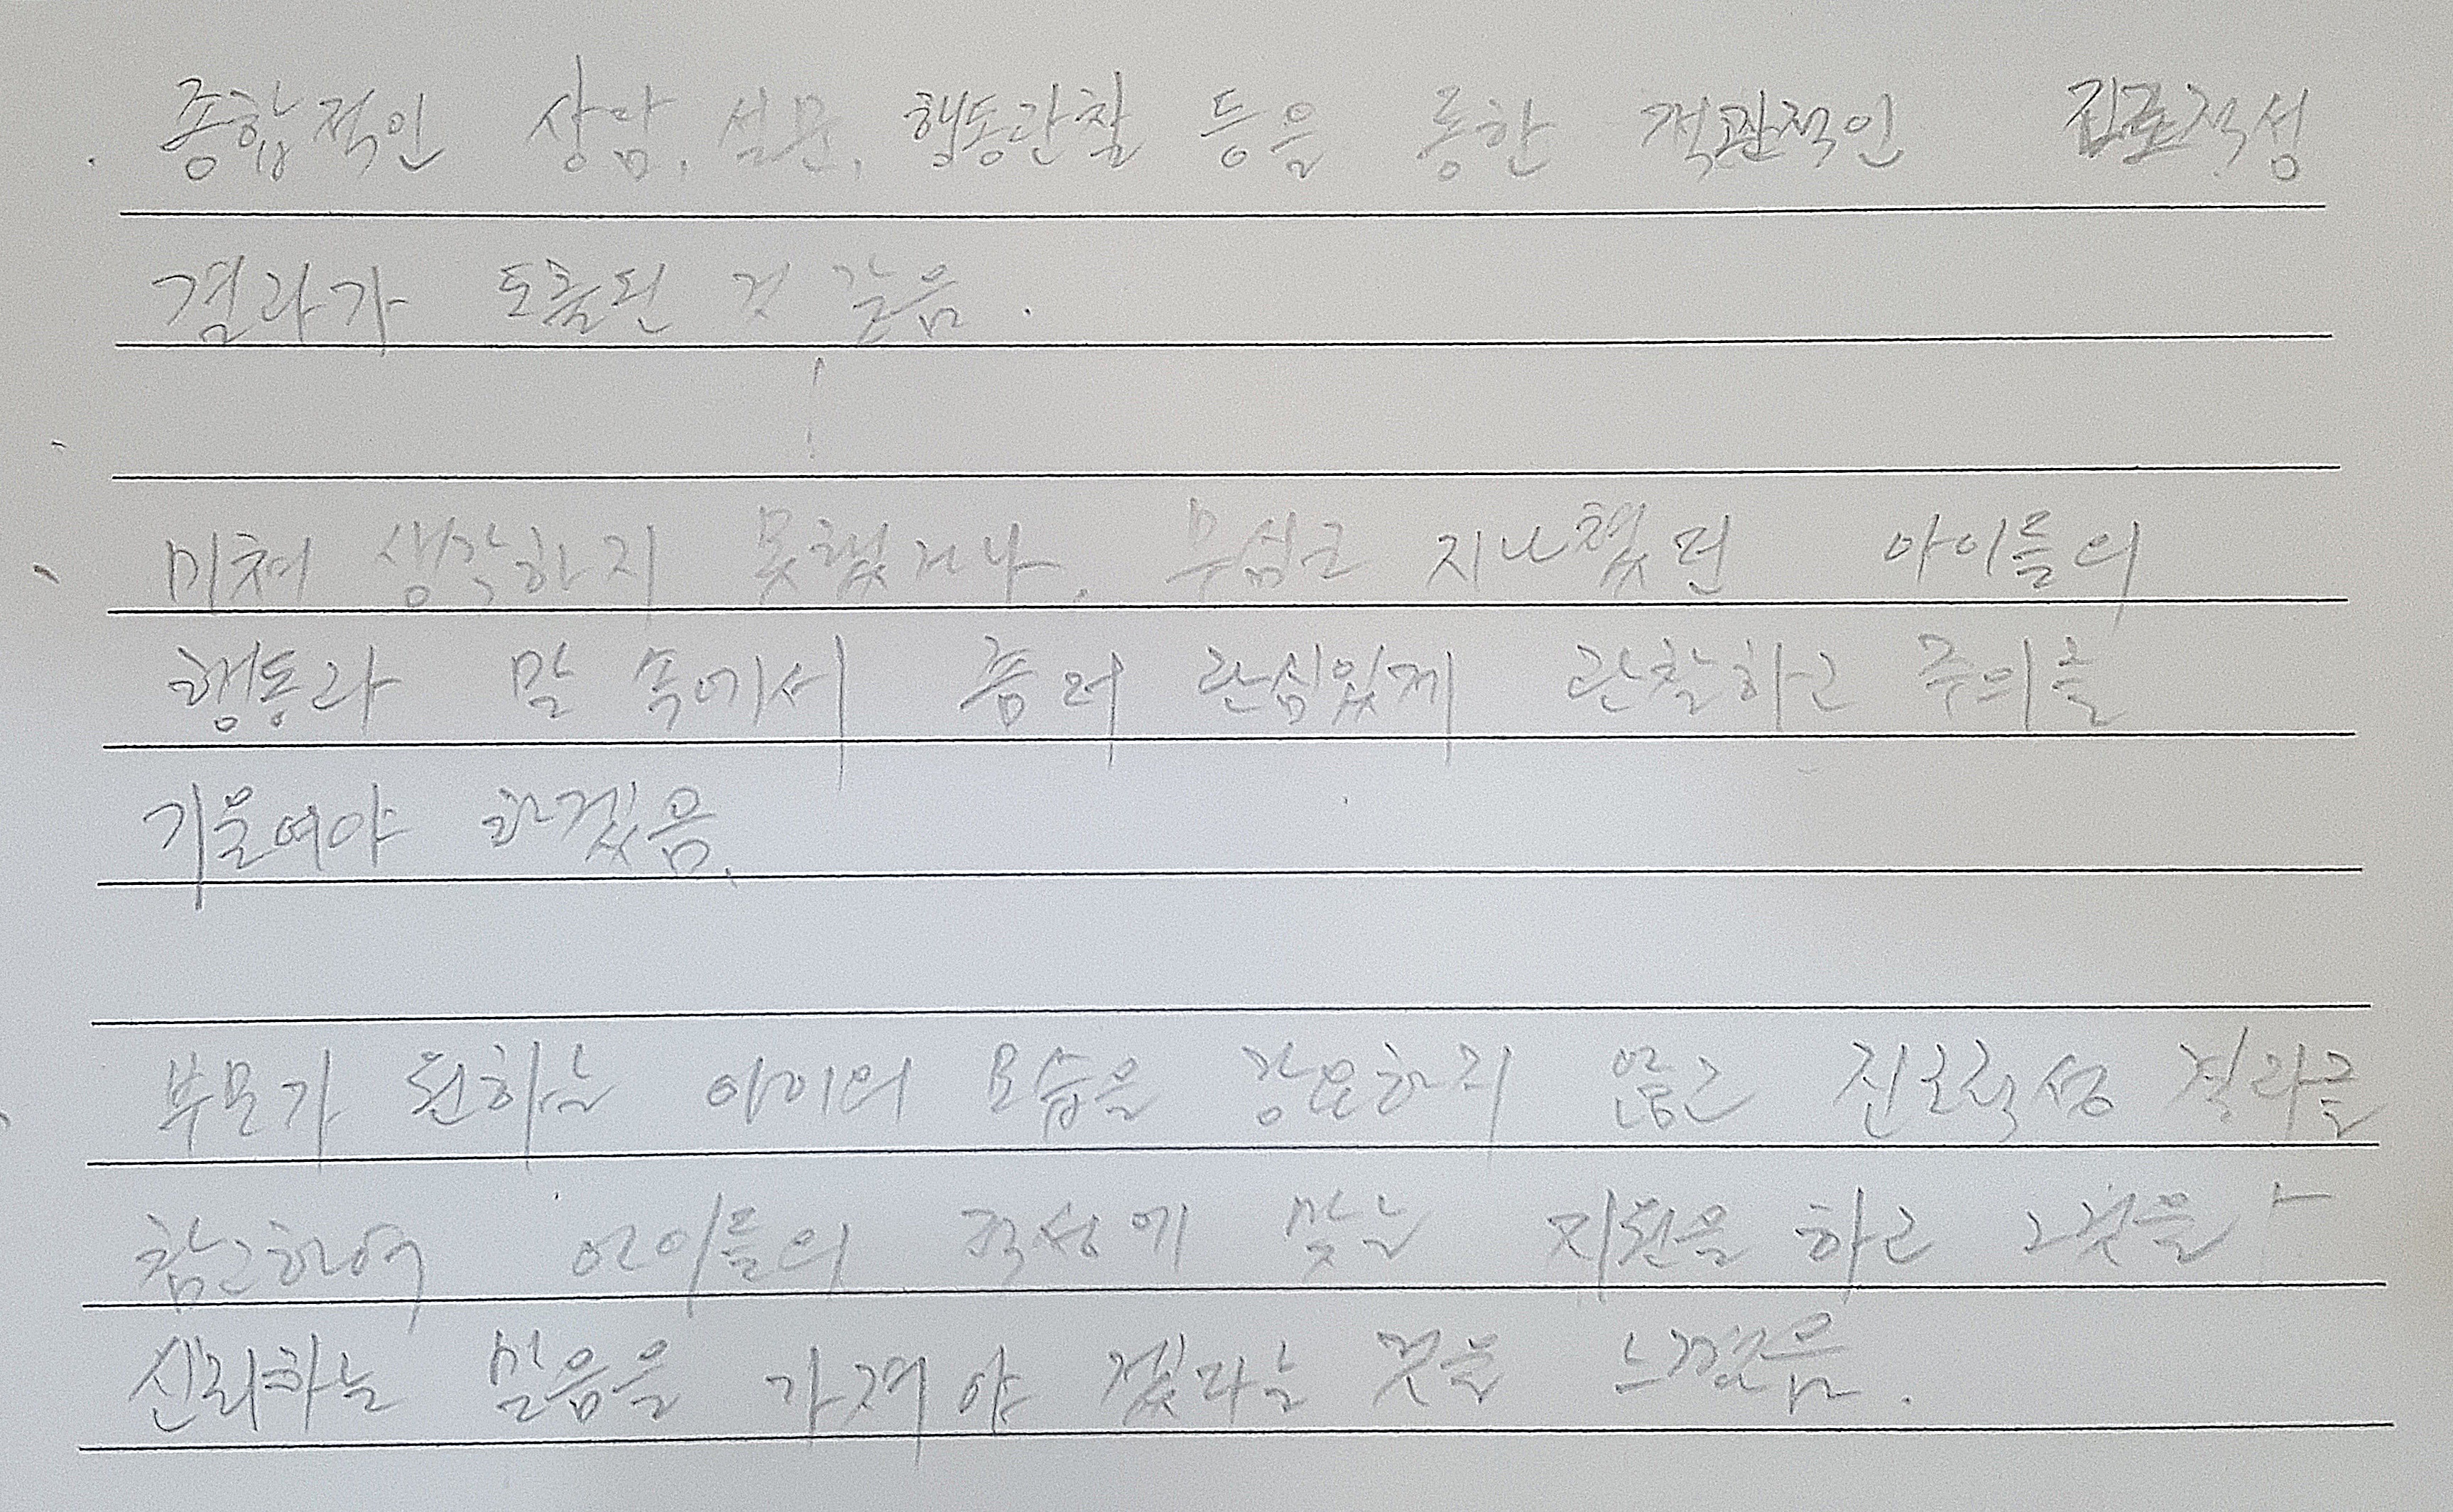 종합적인 상담, 설문, 행동관찰 등을 통한 객관적인 진로적성
결과가 도출된 것 같음.
미처 생각하지 못했거나, 무심코 지나쳤던 아이들의
행동과 말 속에서 좀 더 관심있게 관찰하고 주의를
기울여야 하겠음.
부모가 원하는 아이의 모습을 강요하지 않고 진로적성 결과를
참고하여 아이들의 적성에 맞는 지원을 하고 그것을
신뢰하는 믿음을 가져야 겠다는 것을 느꼈음.